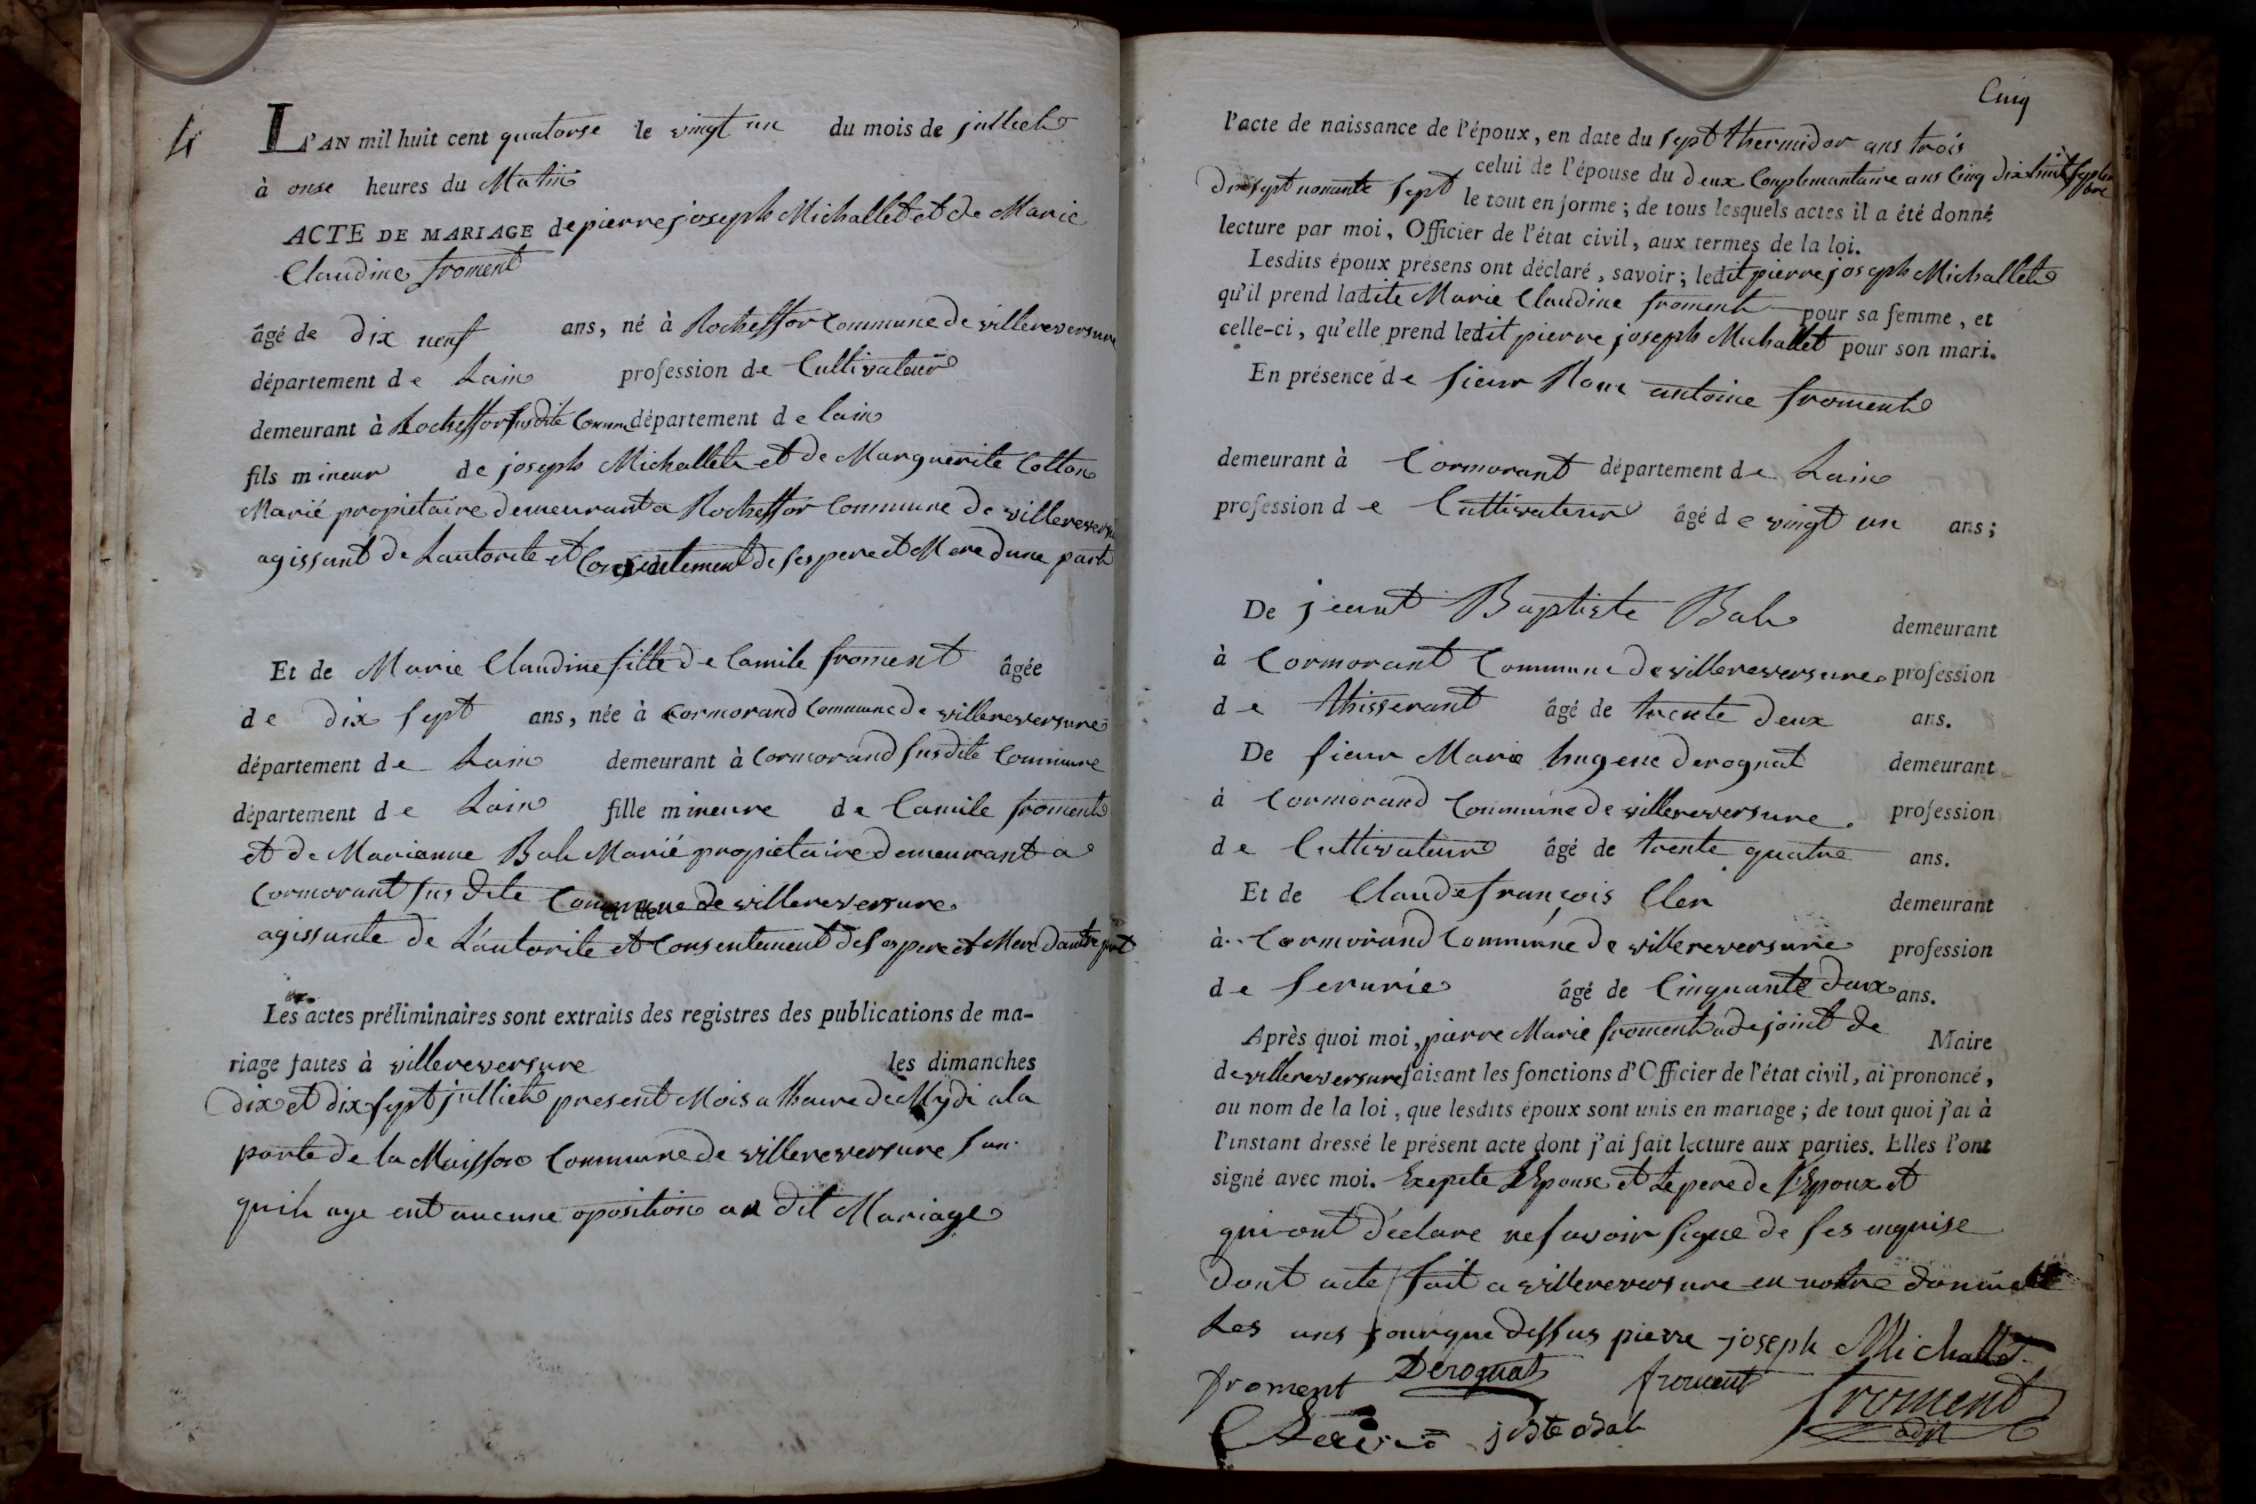 4
L'AN mil huit cent quatorse le vingt un du mois de julliet
à onse heures du Matin
ACTE DE MARIAGE de pierre joseph Michallet et de Marie
Claudine froment
âgé de dix neuf ans, né à Rocheffor Commune de villereversure
département de Lain profession de Cultivateur
demeurant à Rocheffor susdite Commune département de lain
fils mineur de joseph Michallet et de Marguerite Cotton
Marié propiétaire demeurant a Rocheffor Commune de villereversure
agissant de Lautorite et Consentement de ses pere et Mere dune part
Et de Marie Claudine fille de Camile froment âgée
de dix sept ans, née à Cormorand Commune de villereversure
département de Lain demeurant à Cormorand susdite Commune
département de Lain fille mineure de Camile froment
et de Marianne Bal Marié propiétaire demeurant a
Cormorant sus dite Commune de villereversure
agissante de L'autorite et Consentement de ses pere et Mere dautre part
Les actes préliminaires sont extraits des registres des publications de ma-
riage faites à villereversure les dimanches
dix et dix sept julliet present Mois a lheure de Mydi a la
porte de la Maison Commune de villereversure san
quil aye ent aucune oposition au dit Mariage
Cinq
l'acte de naissance de l'époux, en date du sept thermidor ans trois
celui de l'épouse du deux Complemantaire ans Cinq dix huit septembre
dixsept nonante sept le tout en forme; de tous lesquels actes il a été donné
lecture par moi, Officier de l'état civil, aux termes de la loi.
Lesdits époux présens ont déclaré, savoir; ledit pierre joseph Michallet
qu'il prend ladite Marie Claudine froment pour sa femme, et
celle-ci, qu'elle prend ledit pierre joseph Michallet pour son mari.
En présence de sieur antoine froment
demeurant à Cormorant département de Lain
profession de Cultivateur âgé de vingt un ans;
De jeant Baptiste Bal demeurant
à Cormorant Commune de villereversure profession
de thisserant âgé de trente deux ans.
De sieur Marie hugene derognat demeurant
à Cormorand Commune de villereversure profession
de Cultivateur âgé de trente quatre ans.
Et de Claude françois Cler demeurant
à Cormorand Commune de villereversure profession
de serurie âgé de Cinquante deux ans.
Après quoi moi, pierre Marie froment adejoint de Maire
de villereversure faisant les fonctions d'Officier de l'état civil, ai prononcé,
au nom de la loi, que lesdits époux sont unis en mariage; de tout quoi j'ai à
l'instant dressé le présent acte dont j'ai fait lecture aux parties. Elles l'ont
signé avec moi. Exepete L'Epouse et Le pere de l'Epoux et
qui ont déclare ne savoir signe de ses enquise
dont acte fait a villereversure en notre domicile
Les ans jour que dessus pierre joseph Michallet
froment Derognat froment froment
adjt